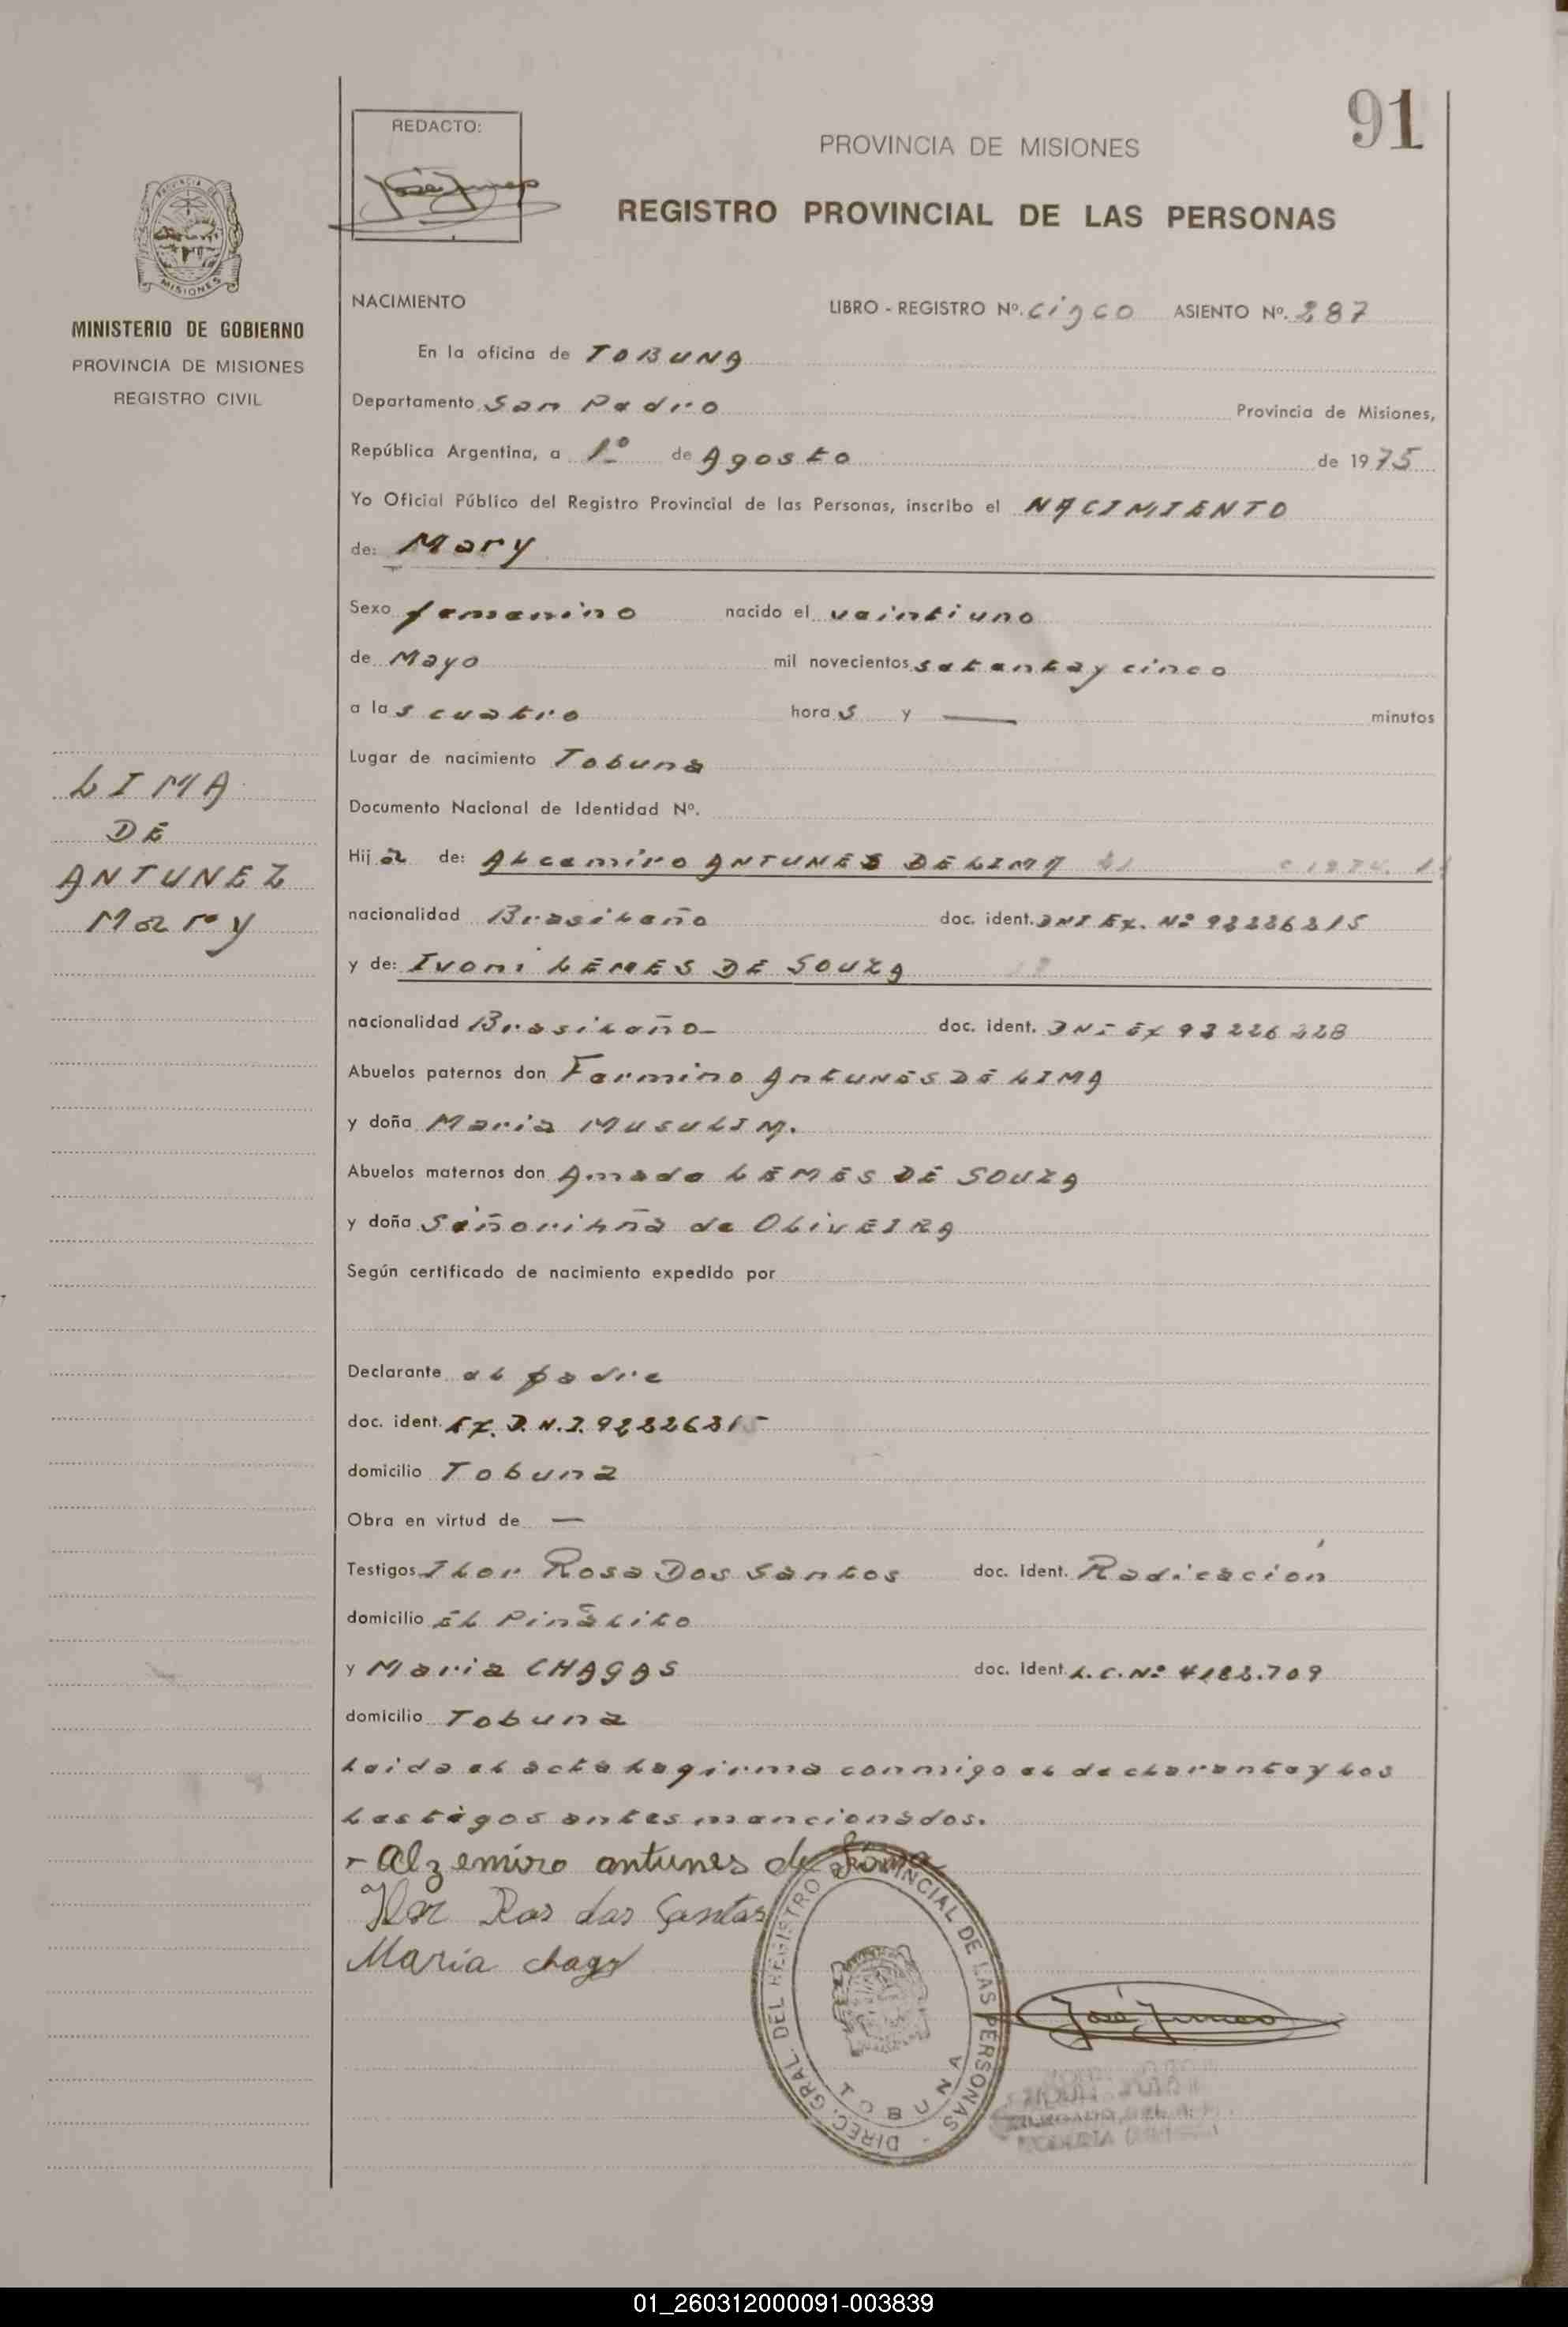 91
REDACTO:
PROVINCIA DE MISIONES
REGISTRO PROVINCIAL DE LAS PERSONAS
MISIONES
MINISTERIO DE GOBIERNO
PROVINCIA DE MISIONES
REGISTRO CIVIL
NACIMIENTO LIBRO - REGISTRO Nº. cinco ASIENTO Nº. 287
En la oficina de TOBUNA
Departamento San Pedro Provincia de Misiones,
República Argentina, a 1º de Agosto de 1975
Yo Oficial Público del Registro Provincial de las Personas, inscribo el NACIMIENTO
de: Mary
Sexo femenino nacido el veintiuno
de Mayo mil novecientos setenta y cinco
a las cuatro horas y — minutos
Lugar de nacimiento Tobuna
Documento Nacional de Identidad Nº.
LIMA
DE
ANTUNEZ
Mary
Hija de: ALcemiro ANTUNES DE LIMA
nacionalidad Brasileño doc. ident. DNI Ex. Nº 92226215
y de: Ivoni LEMES DE SOUZA
nacionalidad Brasileño- doc. ident. DNI Ex 92226228
Abuelos paternos don Fermino AntUNES DE LIMA
y doña Maria MUSULIM.
Abuelos maternos don Amado LEMES DE SOUZA
y doña Señorihña de OLivEIRA
Según certificado de nacimiento expedido por
Declarante el padre
doc. ident. Ex. D.N.I. 92226215
domicilio Tobuna
Obra en virtud de —
Testigos ILor Rosa Dos Santos doc. Ident. Radicación
domicilio El Piñalito
y Maria CHAGAS doc. Ident. L.C. Nº 4182.709
domicilio Tobuna
Leida el acta la firma conmigo el declarante y los
testigos antes mencionados.
Alzemiro antunes de Lima
Ilor Ros dos Santos
Maria chags
José
DIREC. GRAL. DEL REGISTRO PROVINCIAL DE LAS PERSONAS
TOBUNA
01_260312000091-003839